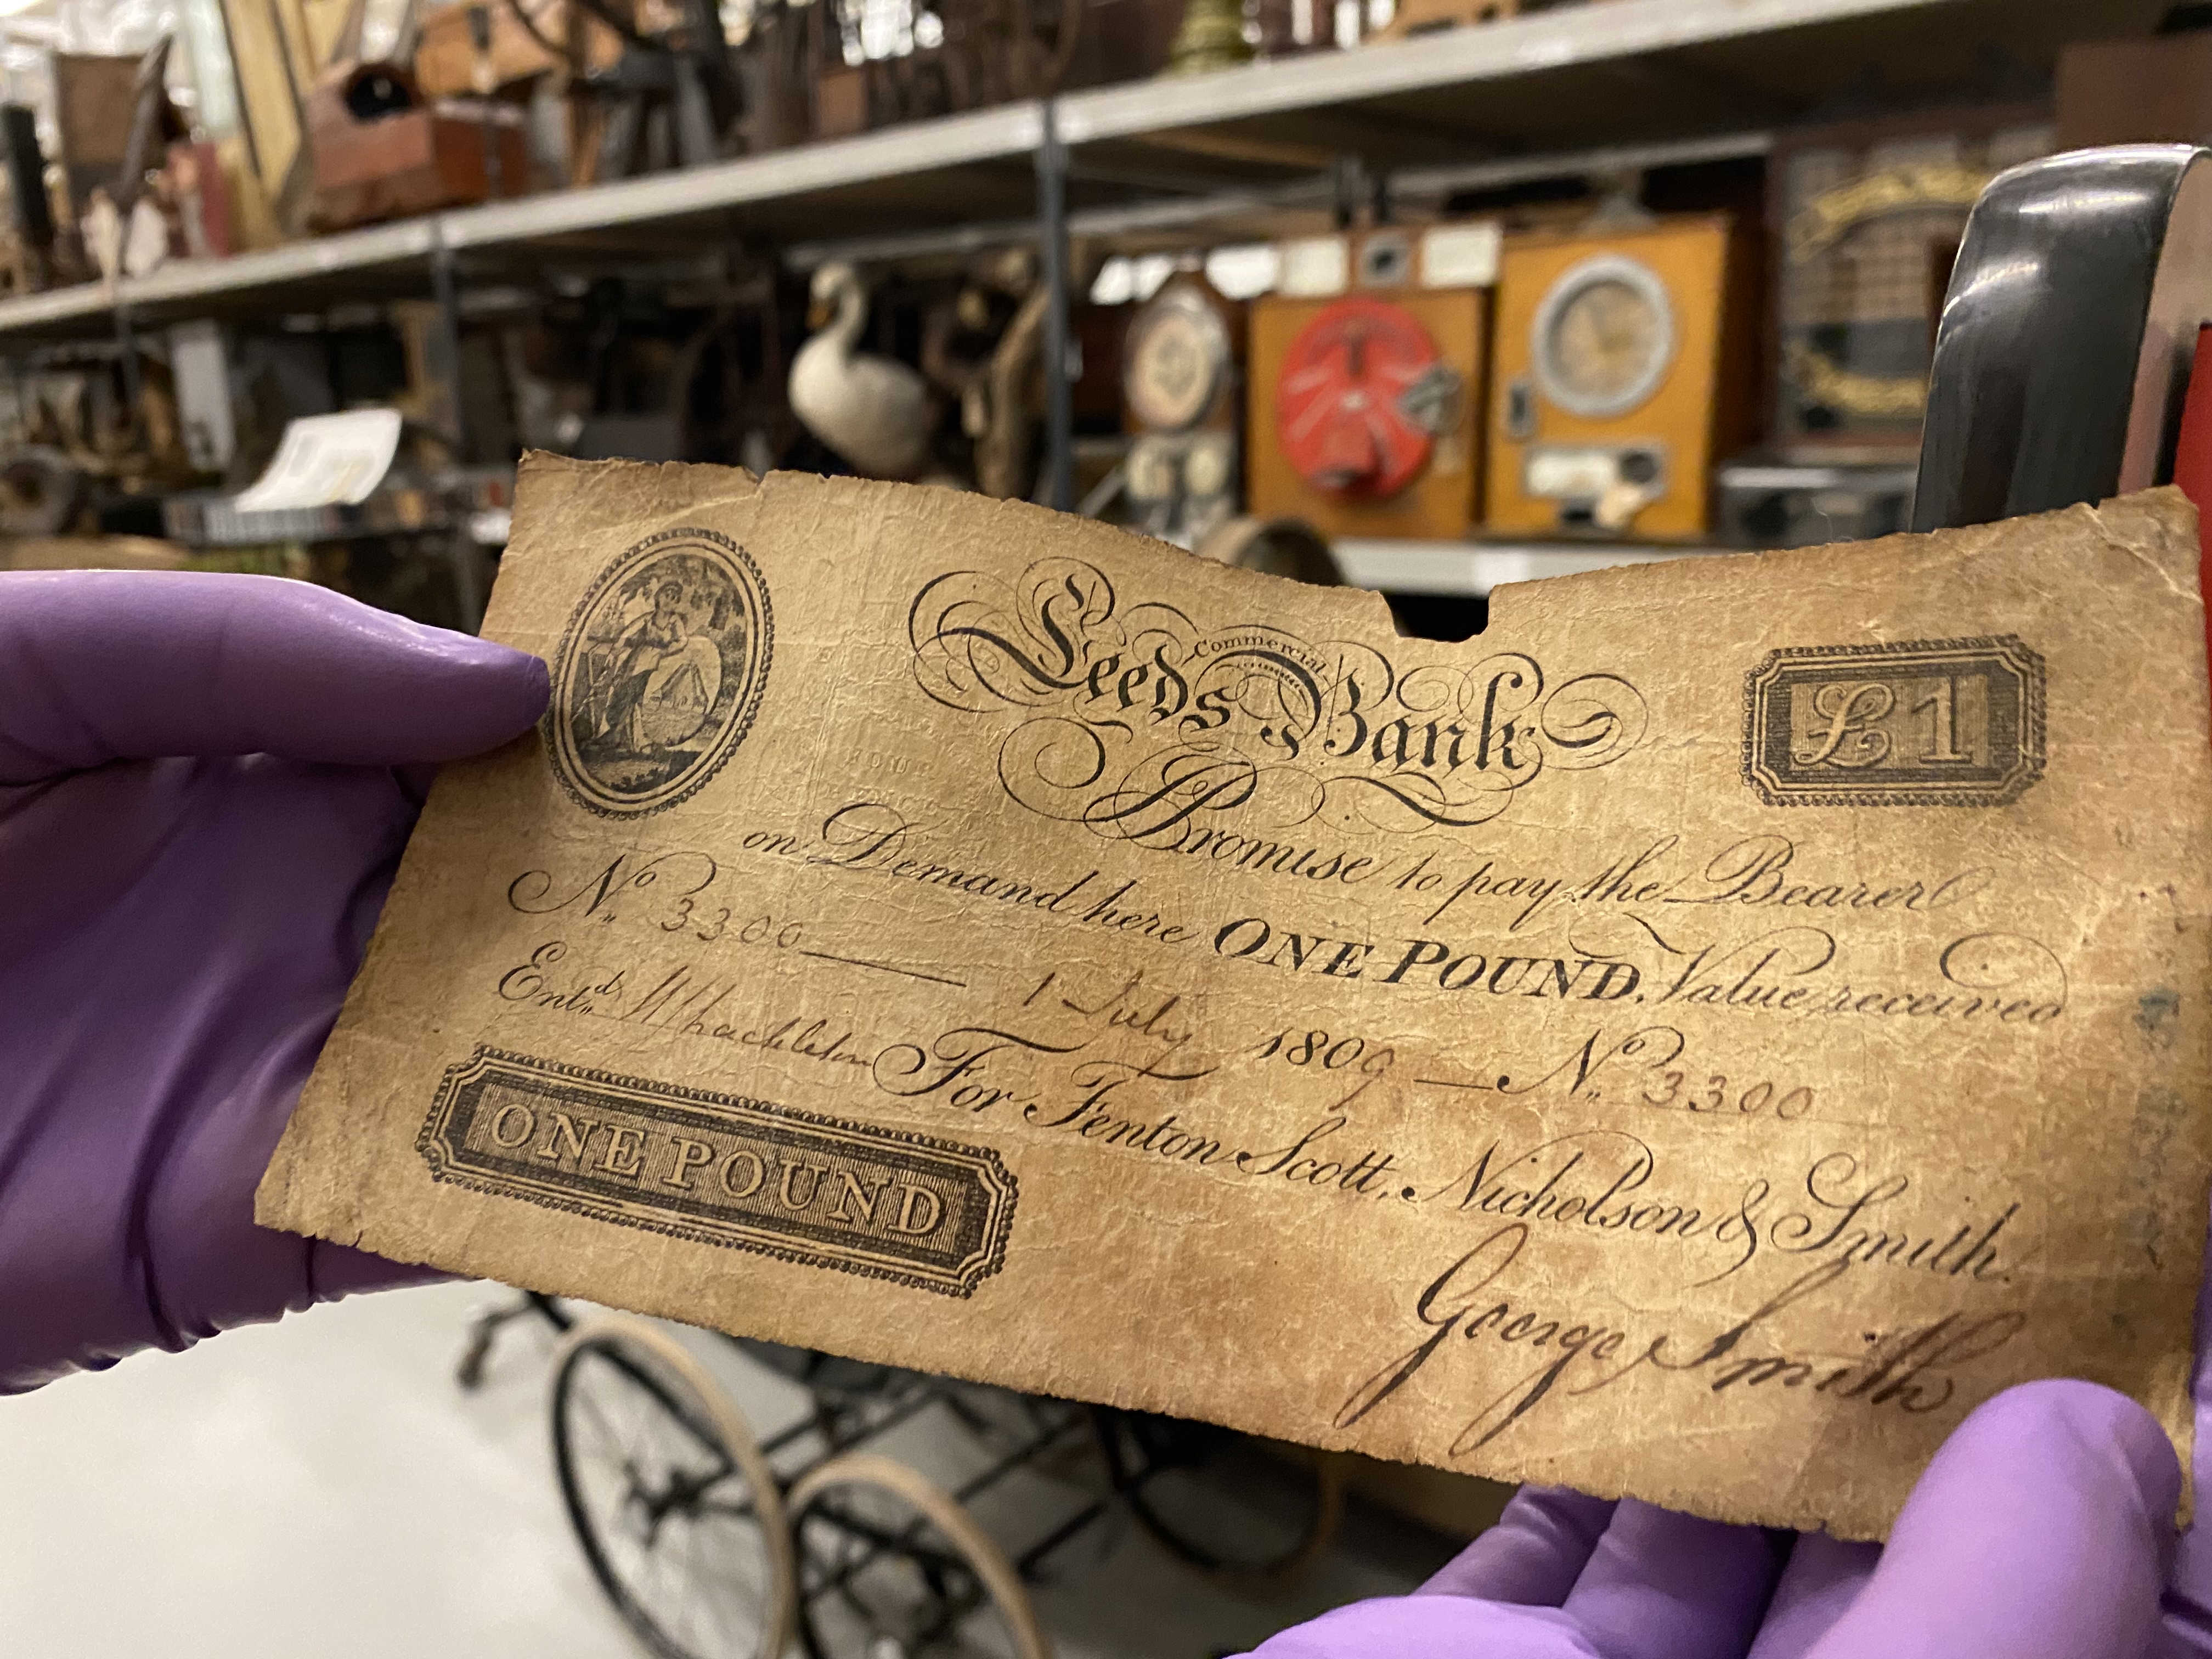 Commercial
Leeds Bank
£1
Promise to pay the Bearer
on Demand here ONE POUND, Value received
No 3300
1 July 1809 — No 3300
Entd.
For Fenton Scott, Nicholson & Smith.
ONE POUND
George Smith